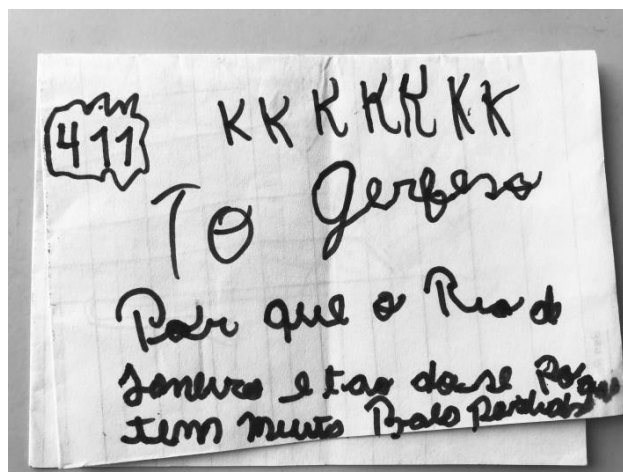 411 KKKKKKK
TO
Por que o Rio de
Janeiro e tao dose Porque
tem muito Bala perdida